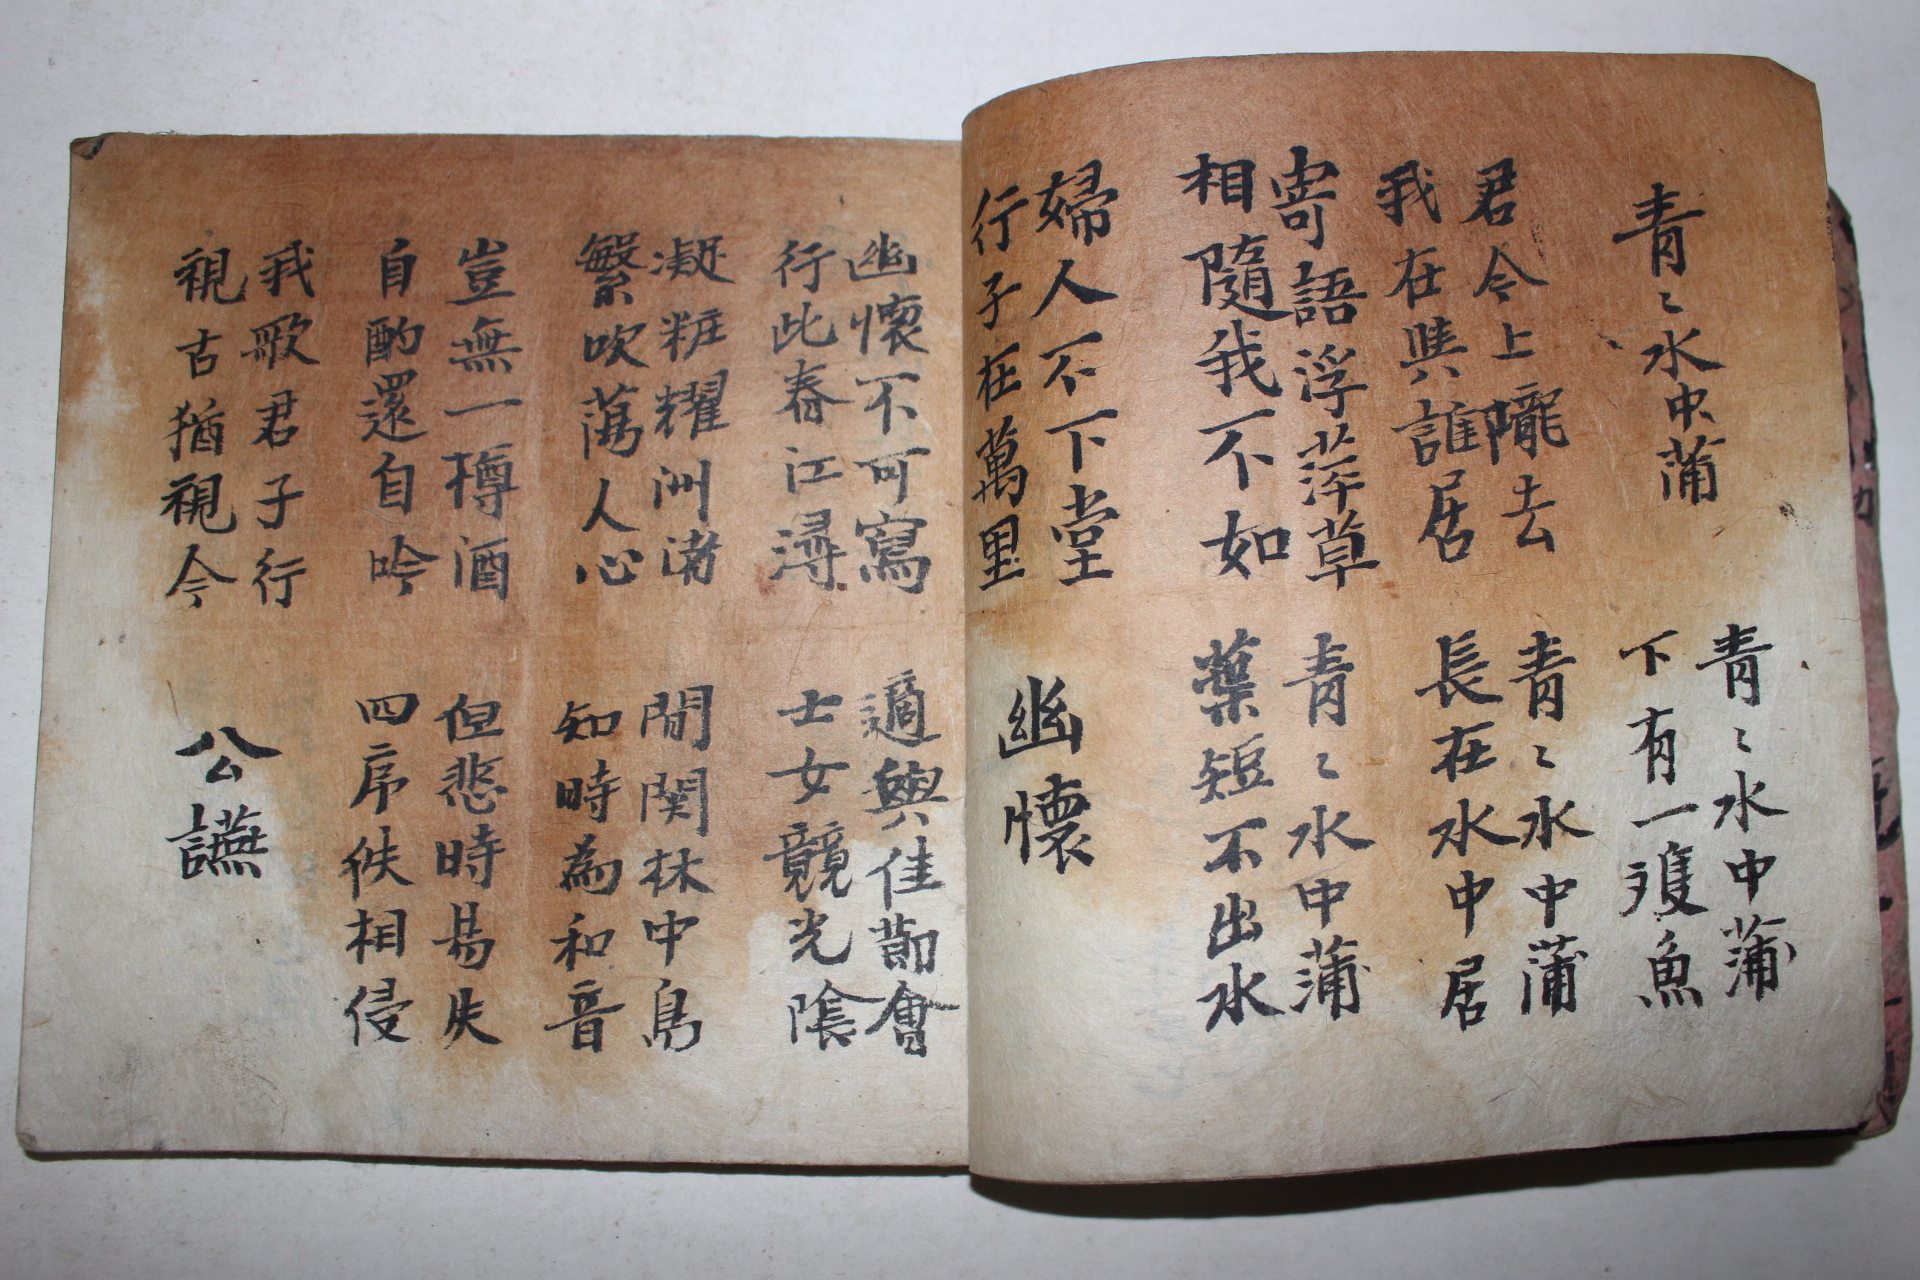 青〻水中蒲
青〻水中蒲
下有一隻魚
君今上隴去
我在與誰居
青〻水中蒲
長在水中居
寄語浮萍草
相隨我不如
青〻水中蒲
葉短不出水
婦人不下堂
行子在萬里
幽懷
幽懷不可寫
行此春江潯
適與佳節會
士女競光陰
凝粧耀洲渚
繁吹蕩人心
間関林中鳥
知時為和音
豈無一樽酒
自酌還自吟
但悲時易失
四序佚相侵
我歌君子行
視古猶視今
公讌